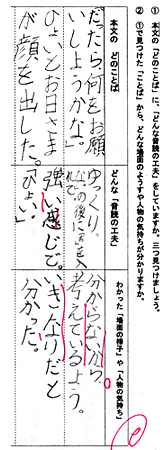 ① 本文の「どのことば」に、「どんな音読の工夫」をしていますか。三つ見つけましょう。
② ①で見つけた「ことば」から、どんな場面のようすや人物の気持ちが分かりますか。
本文の どのことば
どんな「音読の工夫」
わかった「場面の様子」や「人物の気持ち」
だったら何をお願
いしようかな。
ゆっくり。
分からないから、
考えているよう。
ひょいとお日さま
が顔を出した。
強い感じで。
「ひょい」
いきなりだと
分かった。